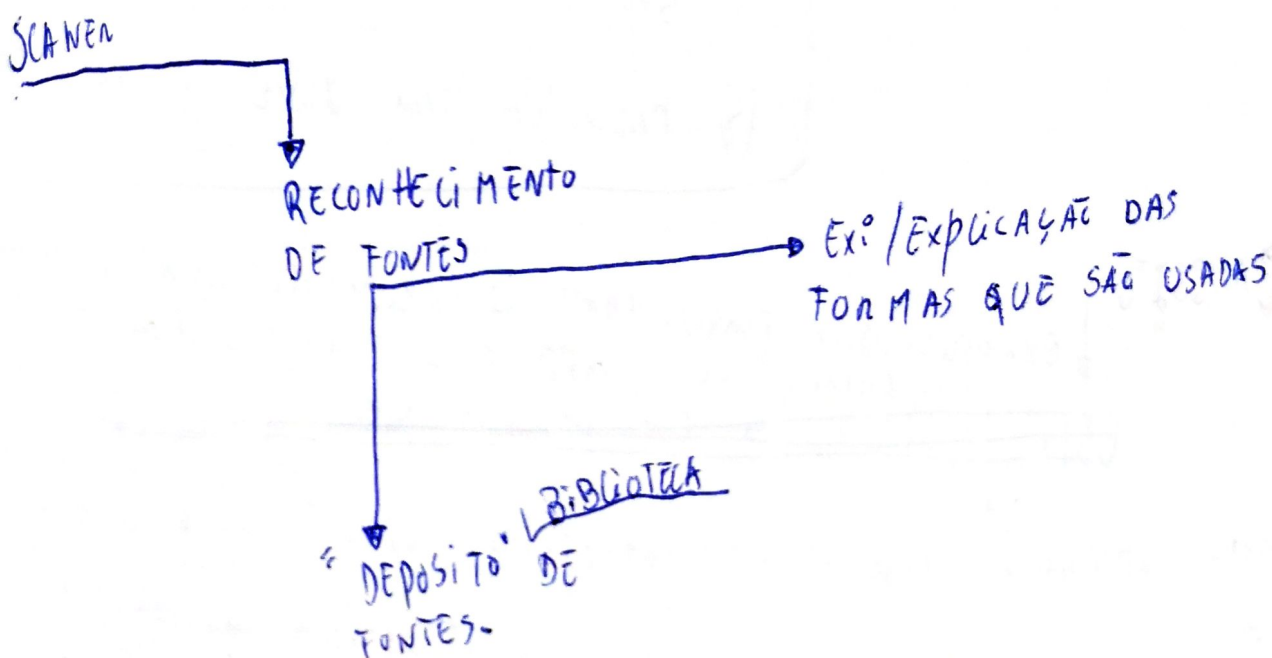 SCANER
RECONHECIMENTO
DE FONTES
Ex: / EXPLICAÇÃO DAS
FORMAS QUE SÃO USADAS
BIBLIOTECA
"DEPOSITO" DE
FONTES.